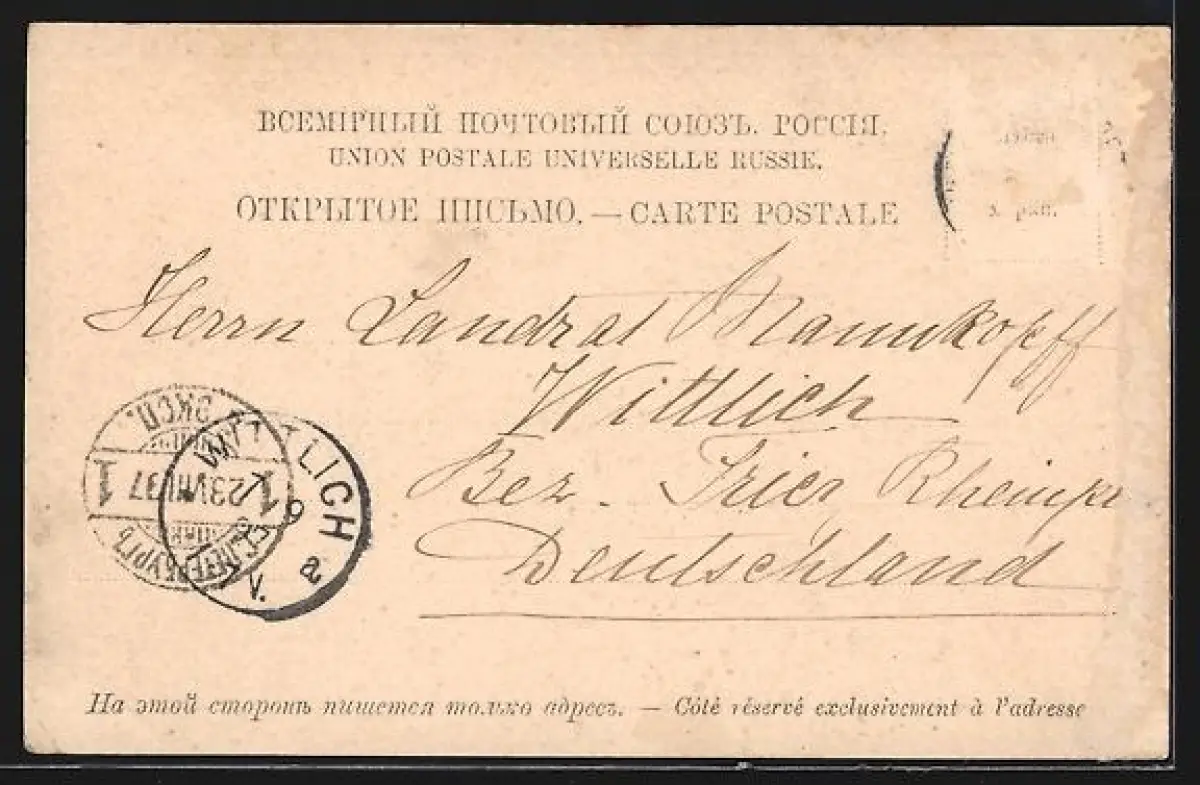 ВСЕМІРНЫЙ ПОЧТОВЫЙ СОЮЗЪ. РОССІЯ.
UNION POSTALE UNIVERSELLE RUSSIE.
ОТКРЫТОЕ ПИСЬМО. — CARTE POSTALE
Herrn Landrat Mannkopff
Wittlich
Bez. Trier
Deutschland
С.ПЕТЕРБУРГЪ
1 23 VIII 97 1
ЭКСП.
WITTLICH
a
На этой сторонѣ пишется только адресъ. — Côté réservé exclusivement à l'adresse